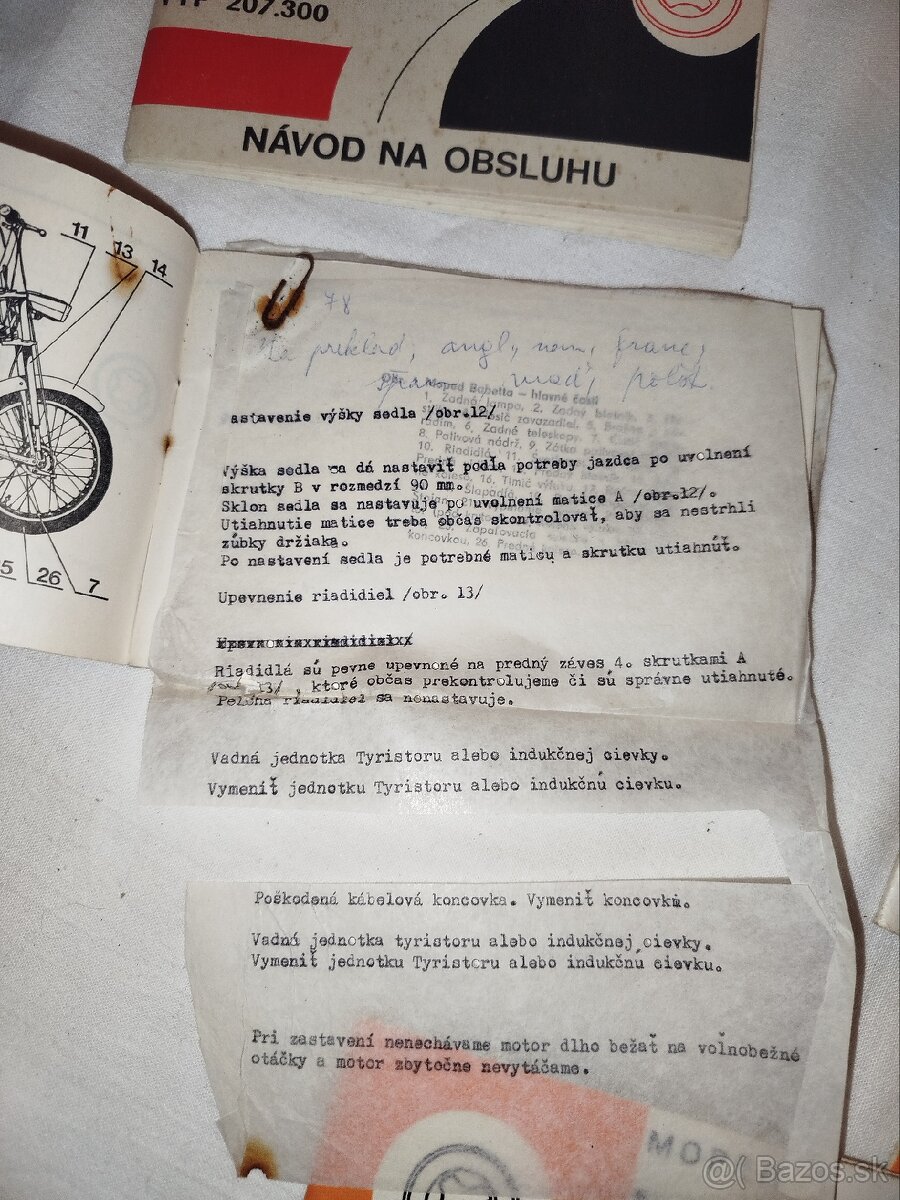 TYP 207.300
NÁVOD NA OBSLUHU
11
13
14
26
7
78
Na preklad, angl, nem, franc,
maď, poľsk.
Moped Babetta – hlavné časti
astavenie výšky sedla /obr.12/
Výška sedla sa dá nastaviť podľa potreby jazdca po uvoľnení
skrutky B v rozmedzí 90 mm.
Sklon sedla sa nastavuje po uvolnení matice A /obr.12/.
Utiahnutie matice treba občas skontrolovať, aby sa nestrhli
zúbky držiaka.
Po nastavení sedla je potrebné maticu a skrutku utiahnúť.
Upevnenie riadidiel /obr. 13/
Riadidlá sú pevne upevnené na predný záves 4. skrutkami A
13/ , ktoré občas prekontrolujeme či sú správne utiahnuté.
Poloha riadidiel sa nenastavuje.
Vadná jednotka Tyristoru alebo indukčnej cievky.
Vymeniť jednotku Tyristoru alebo indukčnú cievku.
Poškodená kábelová koncovka. Vymeniť koncovku.
Vadná jednotka tyristoru alebo indukčnej cievky.
Vymeniť jednotku Tyristoru alebo indukčnú cievku.
Pri zastavení nenechávame motor dlho bežať na voľnobežné
otáčky a motor zbytočne nevytáčame.
@( Bazos.sk